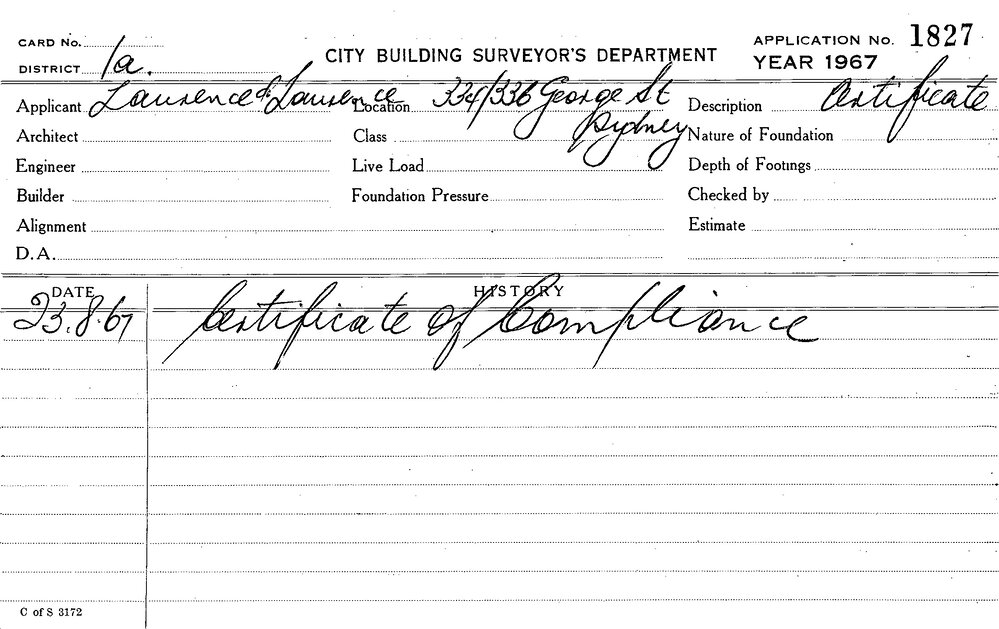 CARD No.
DISTRICT 1a.
CITY BUILDING SURVEYOR'S DEPARTMENT
APPLICATION No. 1827
YEAR 1967
Applicant Laurence & Laurence Location 334/336 George St Description Certificate
Sydney
Architect Class Nature of Foundation
Engineer Live Load Depth of Footings
Builder Foundation Pressure Checked by
Alignment Estimate
D.A.
DATE HISTORY
23.8.67 Certificate of Compliance
C of S 3172